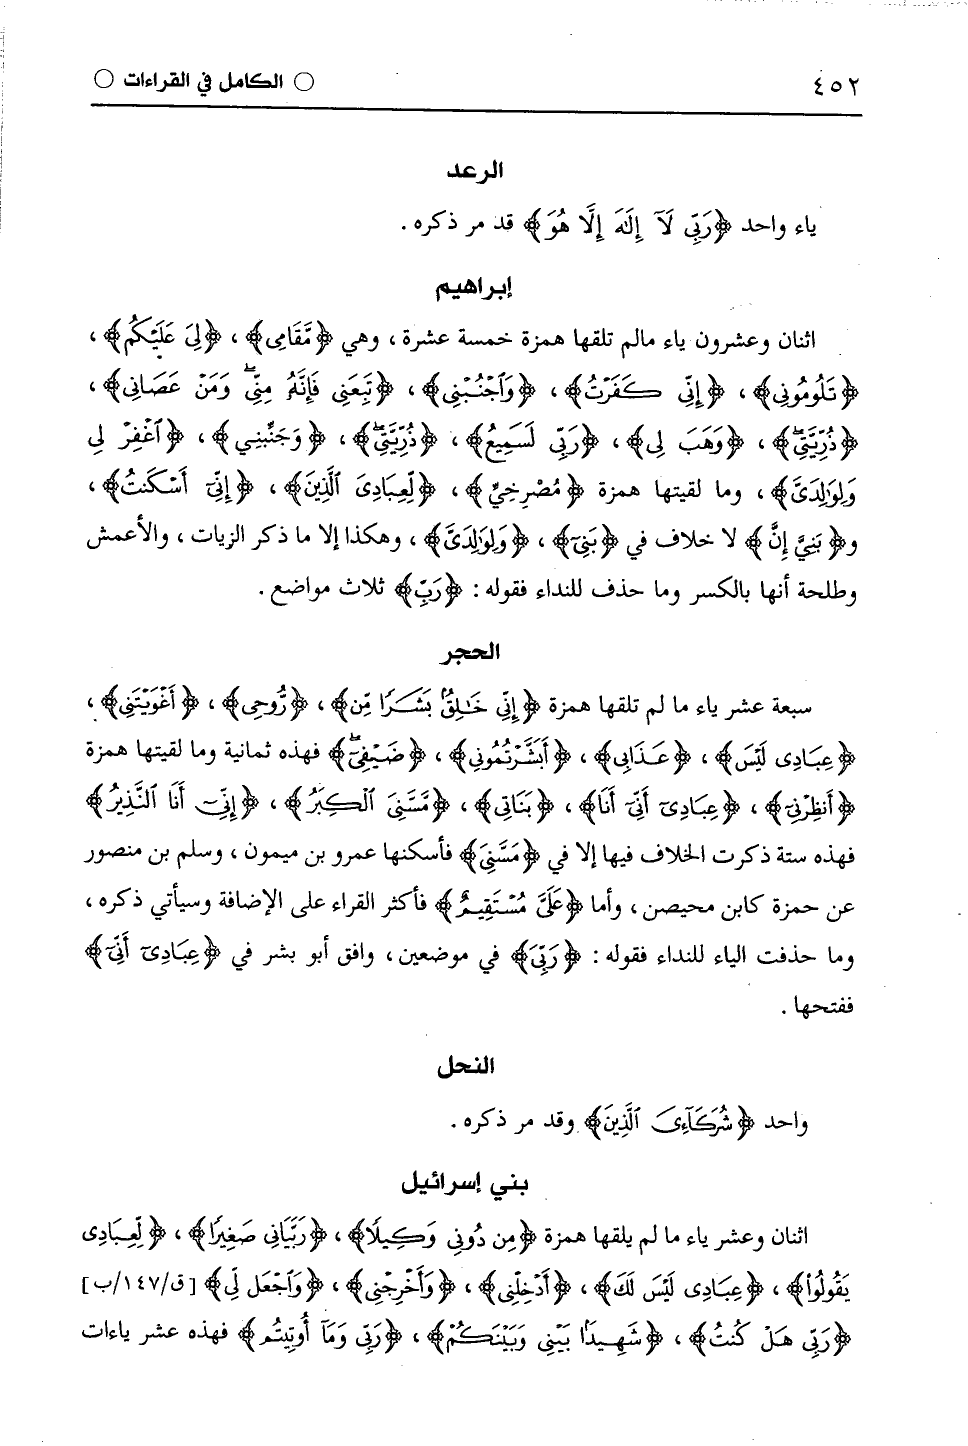 ٤٥٢ ○ الكامل في القراءات ○
الرعد
ياء واحد ﴿رَبِّي لَآ إِلَٰهَ إِلَّا هُوَ﴾ قد مر ذكره .
إبراهيم
اثنان وعشرون ياء مالم تلقها همزة خمسة عشرة ، وهي ﴿مَّقَامِى﴾ ، ﴿لِىَ عَلَيْكُم﴾ ،
﴿تَلُومُونِي﴾ ، ﴿إِنِّي كَفَرْتُ﴾ ، ﴿وَٱجْنُبْنِي﴾ ، ﴿تَبِعَنِي فَإِنَّهُۥ مِنِّيۖ وَمَنْ عَصَانِي﴾ ،
﴿ذُرِّيَّتِيۖ﴾ ، ﴿وَهَبَ لِي﴾ ، ﴿رَبِّي لَسَمِيعُ﴾ ، ﴿ذُرِّيَّتِيۖ﴾ ، ﴿وَجَنِّبنِي﴾ ، ﴿ٱغْفِرْ لِي
وَلِوَٰلِدَىَّ﴾ ، وما لقيتها همزة ﴿مُصْرِخِيَّ﴾ ، ﴿لِّعِبَادِىَ ٱلَّذِينَ﴾ ، ﴿إِنِّيٓ أَسْكَنتُ﴾ ،
و﴿بَنِيَّ إِنَّ﴾ لا خلاف في ﴿بَنِيٓ﴾ ، ﴿وَلِوَٰلِدَىَّ﴾ ، وهكذا إلا ما ذكر الزيات ، والأعمش
وطلحة أنها بالكسر وما حذف للنداء فقوله : ﴿رَبِّ﴾ ثلاث مواضع .
الحجر
سبعة عشر ياء ما لم تلقها همزة ﴿إِنِّي خَٰلِقٌۢ بَشَرًا مِّن﴾ ، ﴿رُّوحِي﴾ ، ﴿أَغْوَيْتَنِي﴾ ،
﴿عِبَادِى لَيْسَ﴾ ، ﴿عَذَابِي﴾ ، ﴿أَبَشَّرْتُمُونِي﴾ ، ﴿ضَيْفِيۖ﴾ فهذه ثمانية وما لقيتها همزة
﴿أَنظِرْنِيٓ﴾ ، ﴿عِبَادِىٓ أَنِّيٓ أَنَا﴾ ، ﴿بَنَاتِيٓ﴾ ، ﴿مَّسَّنِيَ ٱلْكِبَرُ﴾ ، ﴿إِنِّيٓ أَنَا ٱلنَّذِيرُ﴾
فهذه ستة ذكرت الخلاف فيها إلا في ﴿مَسَّنِيَ﴾ فأسكنها عمرو بن ميمون ، وسلم بن منصور
عن حمزة كابن محيصن ، وأما ﴿عَلَىَّ مُسْتَقِيمٌ﴾ فأكثر القراء على الإضافة وسيأتي ذكره ،
وما حذفت الياء للنداء فقوله : ﴿رَبِّيَ﴾ في موضعين ، وافق أبو بشر في ﴿عِبَادِىٓ أَنِّيٓ﴾
ففتحها .
النحل
واحد ﴿شُرَكَآءِىَ ٱلَّذِينَ﴾ وقد مر ذكره .
بني إسرائيل
اثنان وعشر ياء ما لم يلقها همزة ﴿مِن دُونِي وَكِيلًا﴾ ، ﴿رَبَّيَانِي صَغِيرًا﴾ ، ﴿لِّعِبَادِى
يَقُولُواْ﴾ ، ﴿عِبَادِى لَيْسَ لَكَ﴾ ، ﴿أَدْخِلْنِي﴾ ، ﴿وَأَخْرِجْنِي﴾ ، ﴿وَٱجْعَل لِّي﴾ [ق/١٤٧/ب]
﴿رَبِّي هَلْ كُنتُ﴾ ، ﴿شَهِيدًۢا بَيْنِي وَبَيْنَكُمْ﴾ ، ﴿رَبِّي وَمَآ أُوتِيتُم﴾ فهذه عشر ياءات